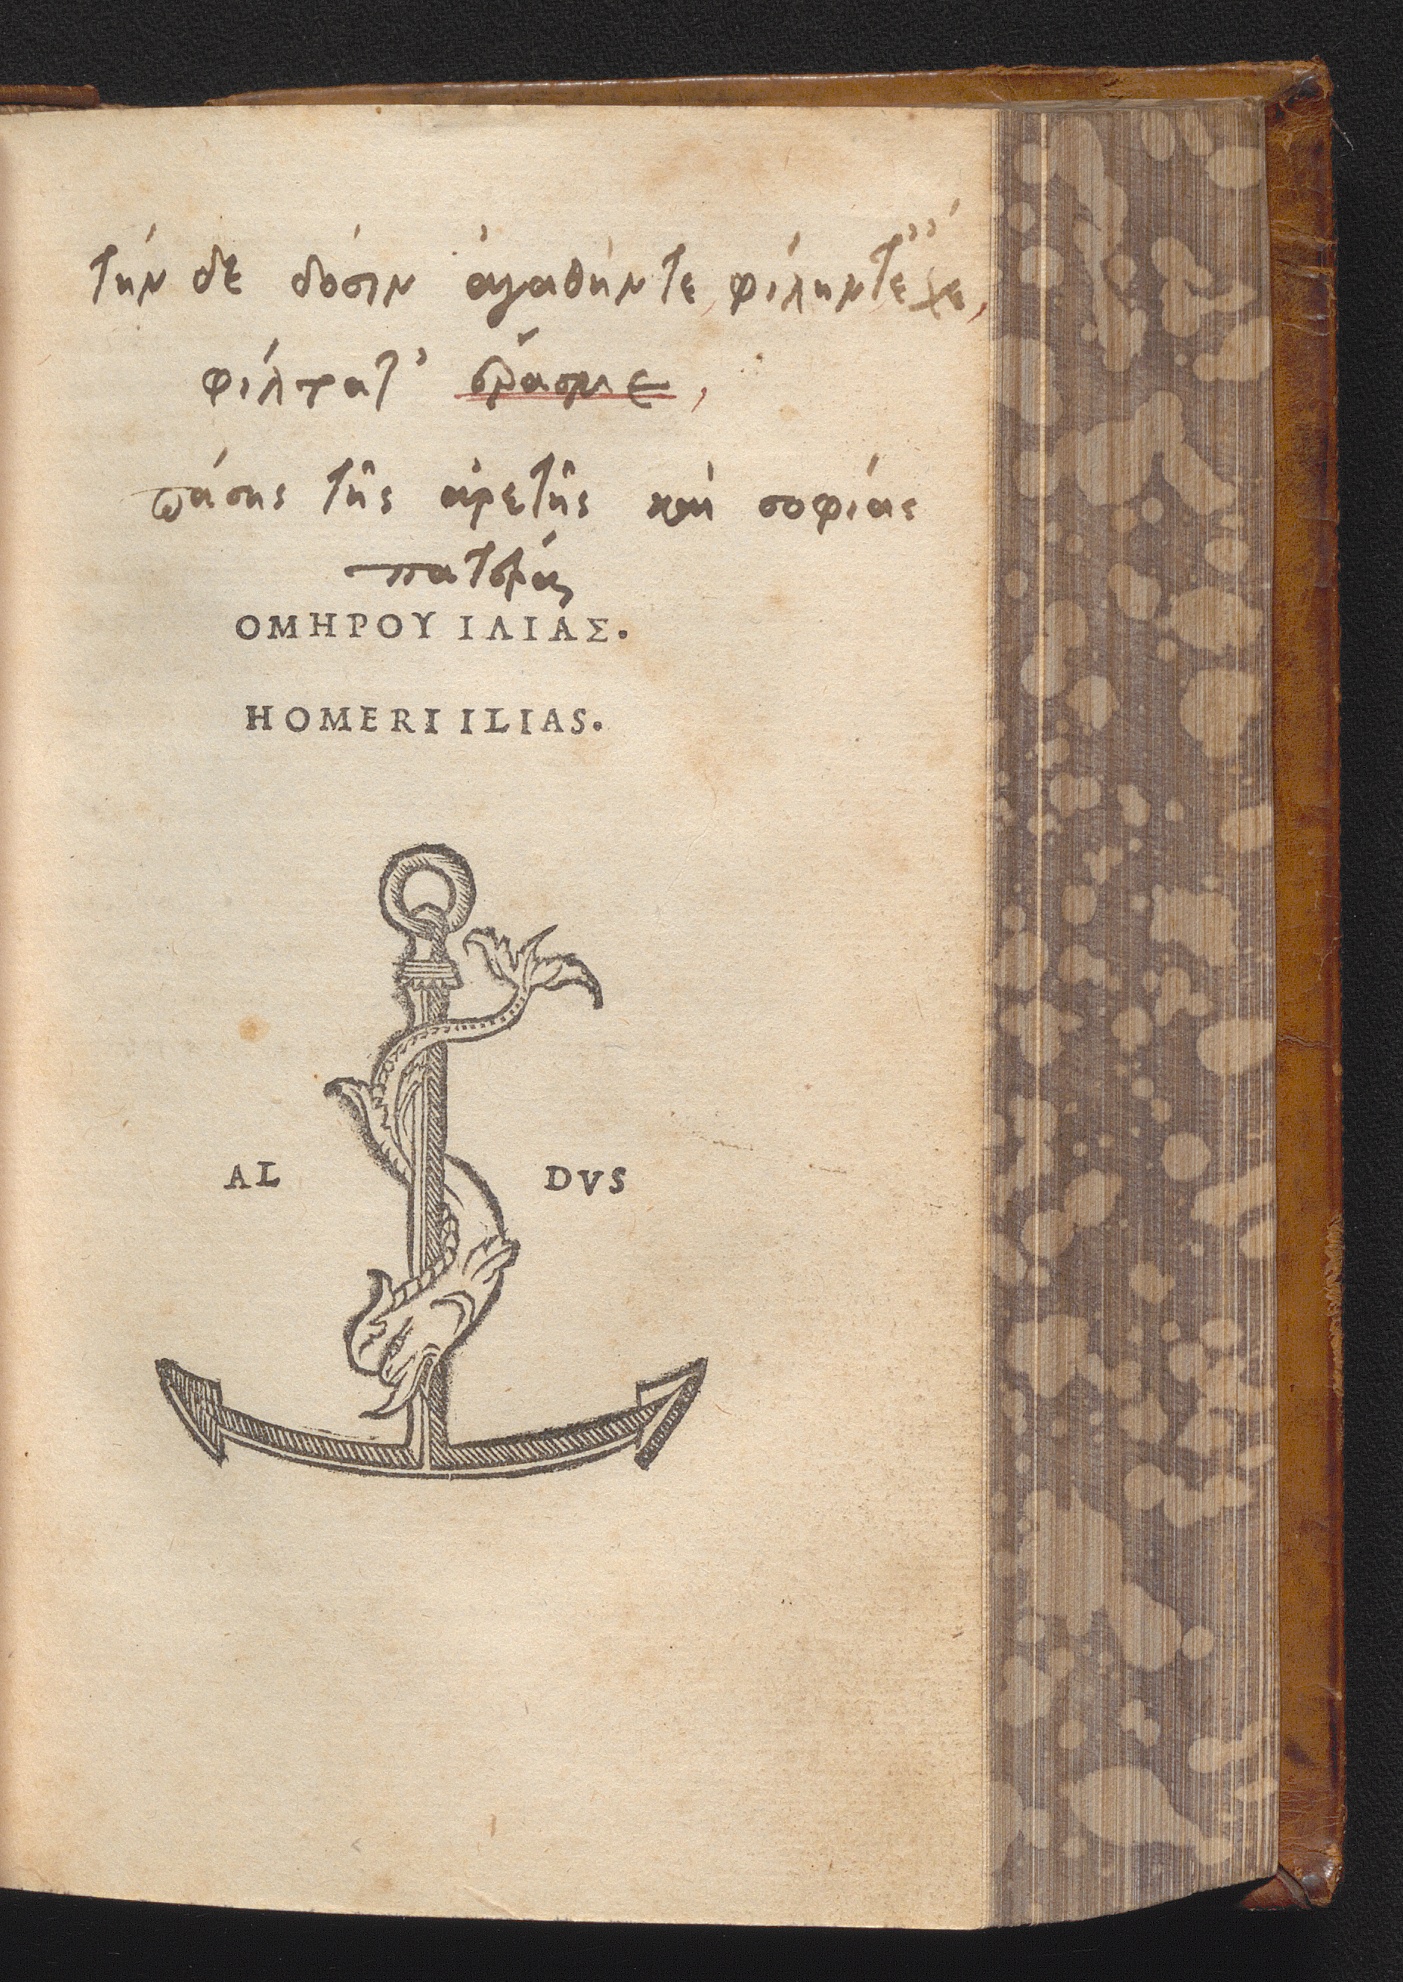 τήν δε δόσιν ἀγαθήν τε φίλην τε ἔχε,
φίλτατ' ἔρασμιε,
πάσης τῆς ἀρετῆς καὶ σοφίας
ΟΜΗΡΟΥ ΙΛΙΑΣ.
HOMERI ILIAS.
AL DVS